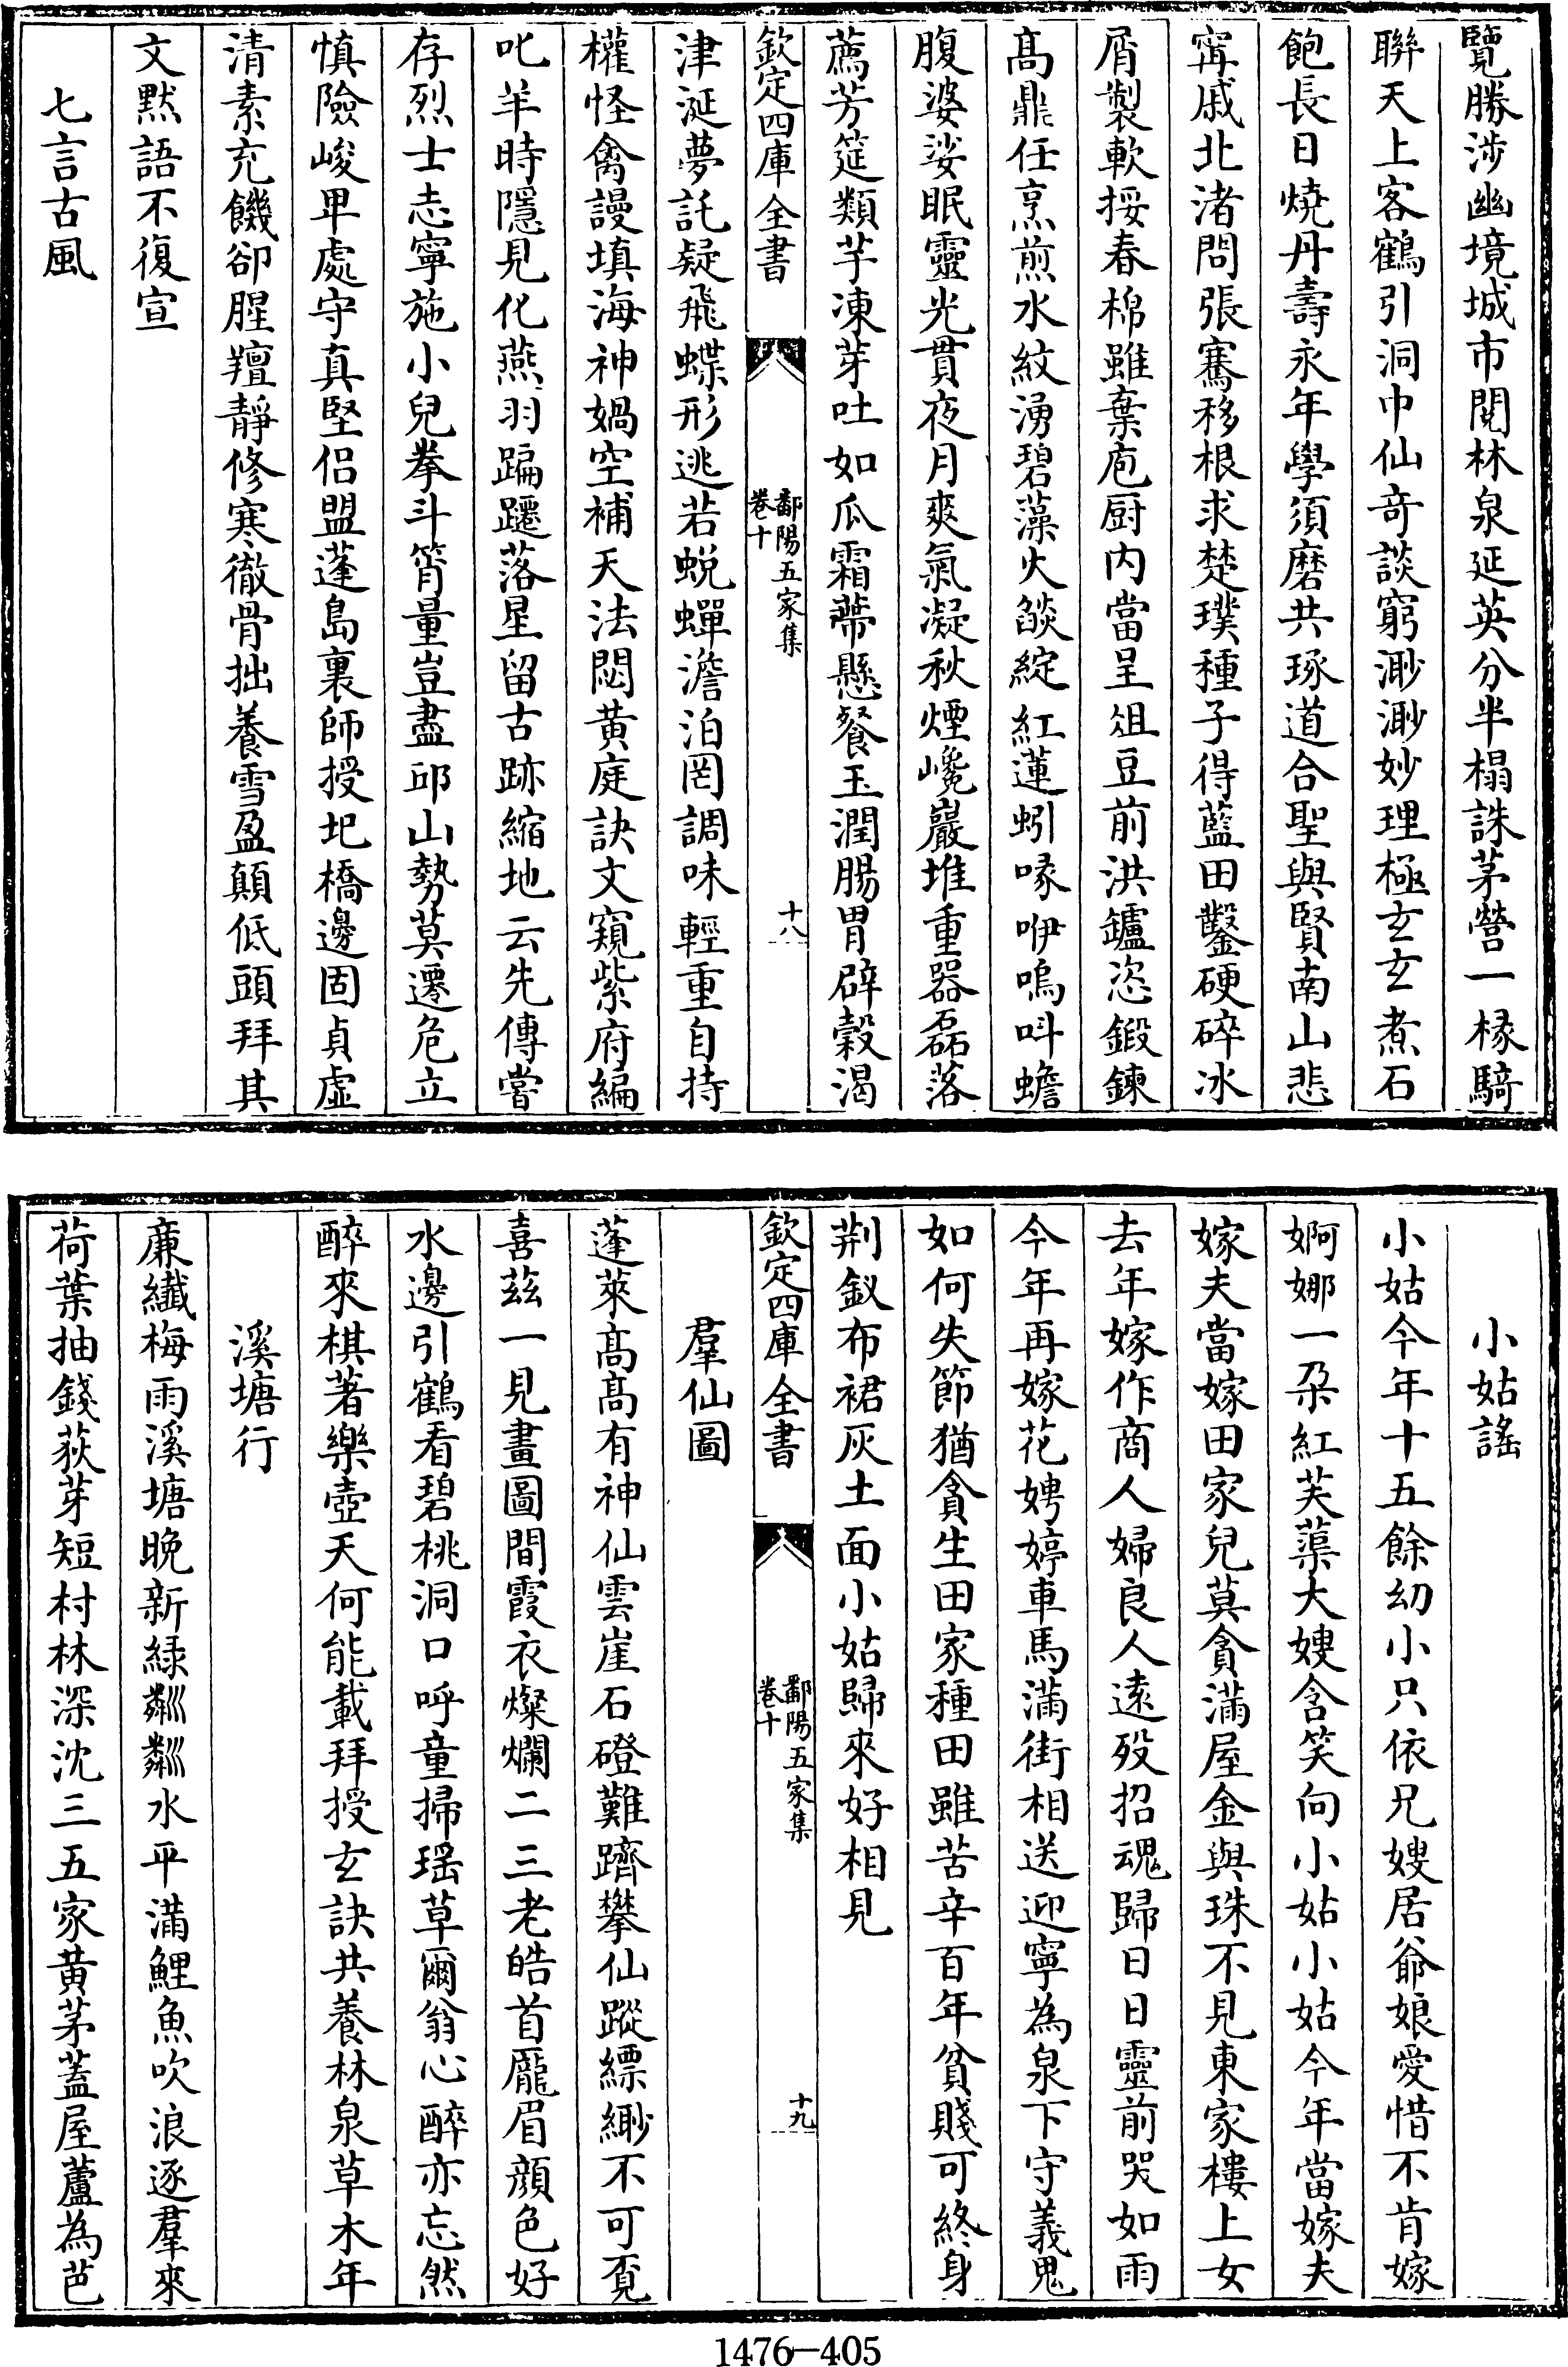 覽勝涉幽境城市閱林泉延英分半榻誅茅營一椽騎
聯天上客鶴引洞中仙奇談窮渺渺妙理極玄玄煮石
飽長日燒丹壽永年學須磨共琢道合聖與賢南山悲
寗戚北渚問張騫移根求楚璞種子得藍田鑿硬碎冰
屑製軟挼春棉雖棄庖厨内當呈俎豆前洪鑪恣鍛鍊
高鼎任烹煎水紋湧碧藻火燄綻紅蓮蚓喙咿嗚呌蟾
腹婆娑眠靈光貫夜月爽氣凝秋煙巉巖堆重器磊落
薦芳筵類芋凍芽吐如瓜霜蔕懸餐玉潤腸胃辟穀渴
欽定四庫全書
鄱陽五家集
卷十
十八
津涎夢託疑飛蝶形逃若蜕蟬澹泊罔調味輕重自持
權怪禽謾填海神媧空補天法閟黄庭訣文窺紫府編
叱羊時隱見化燕羽蹁躚落星留古跡縮地云先傳嘗
存烈士志寧施小兒拳斗筲量豈盡邱山勢莫遷危立
慎險峻卑處守真堅侣盟蓬島裏師授圯橋邊固貞虚
清素充饑卻腥羶靜修寒徹骨拙養雪盈顛低頭拜其
文默語不復宣
七言古風
小姑謡
小姑今年十五餘幼小只依兄嫂居爺娘愛惜不肯嫁
婀娜一朶紅芙蕖大嫂含笑向小姑小姑今年當嫁夫
嫁夫當嫁田家兒莫貪滿屋金與珠不見東家樓上女
去年嫁作商人婦良人遠殁招魂歸日日靈前哭如雨
今年再嫁花娉婷車馬滿街相送迎寧為泉下守義鬼
如何失節猶貪生田家種田雖苦辛百年貧賤可終身
荆釵布裙灰土面小姑歸來好相見
欽定四庫全書
鄱陽五家集
卷十
十九
羣仙圖
蓬萊高高有神仙雲崖石磴難躋攀仙蹤縹緲不可覔
喜茲一見畫圖間霞衣燦爛二三老皓首龎眉顔色好
水邊引鶴看碧桃洞口呼童掃瑶草爾翁心醉亦忘然
醉來棋著樂壺天何能載拜授玄訣共養林泉草木年
溪塘行
亷纖梅雨溪塘晚新緑粼粼水平滿鯉魚吹浪逐羣來
荷葉抽錢荻芽短村林深沈三五家黄茅蓋屋蘆為芭
1476—405